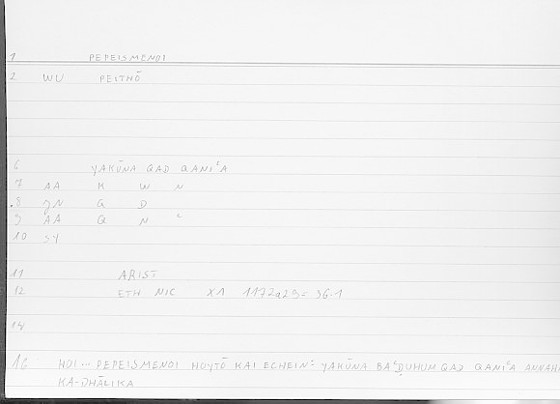 1 PEPEISMENOI
2 WU PEITHŌ
6 YAKŪNA QAD QANIʿA
7 AA K W N
8 JN Q D
9 AA Q N ʿ
10 SY
11 ARIST
12 ETH NIC X1 1172a23 = 36.1
14
16 HOI ... PEPEISMENOI HOYTŌ KAI ECHEIN: YAKŪNA BAʿḌUHUM QAD QANIʿA ANNAH
KA-DHĀLIKA